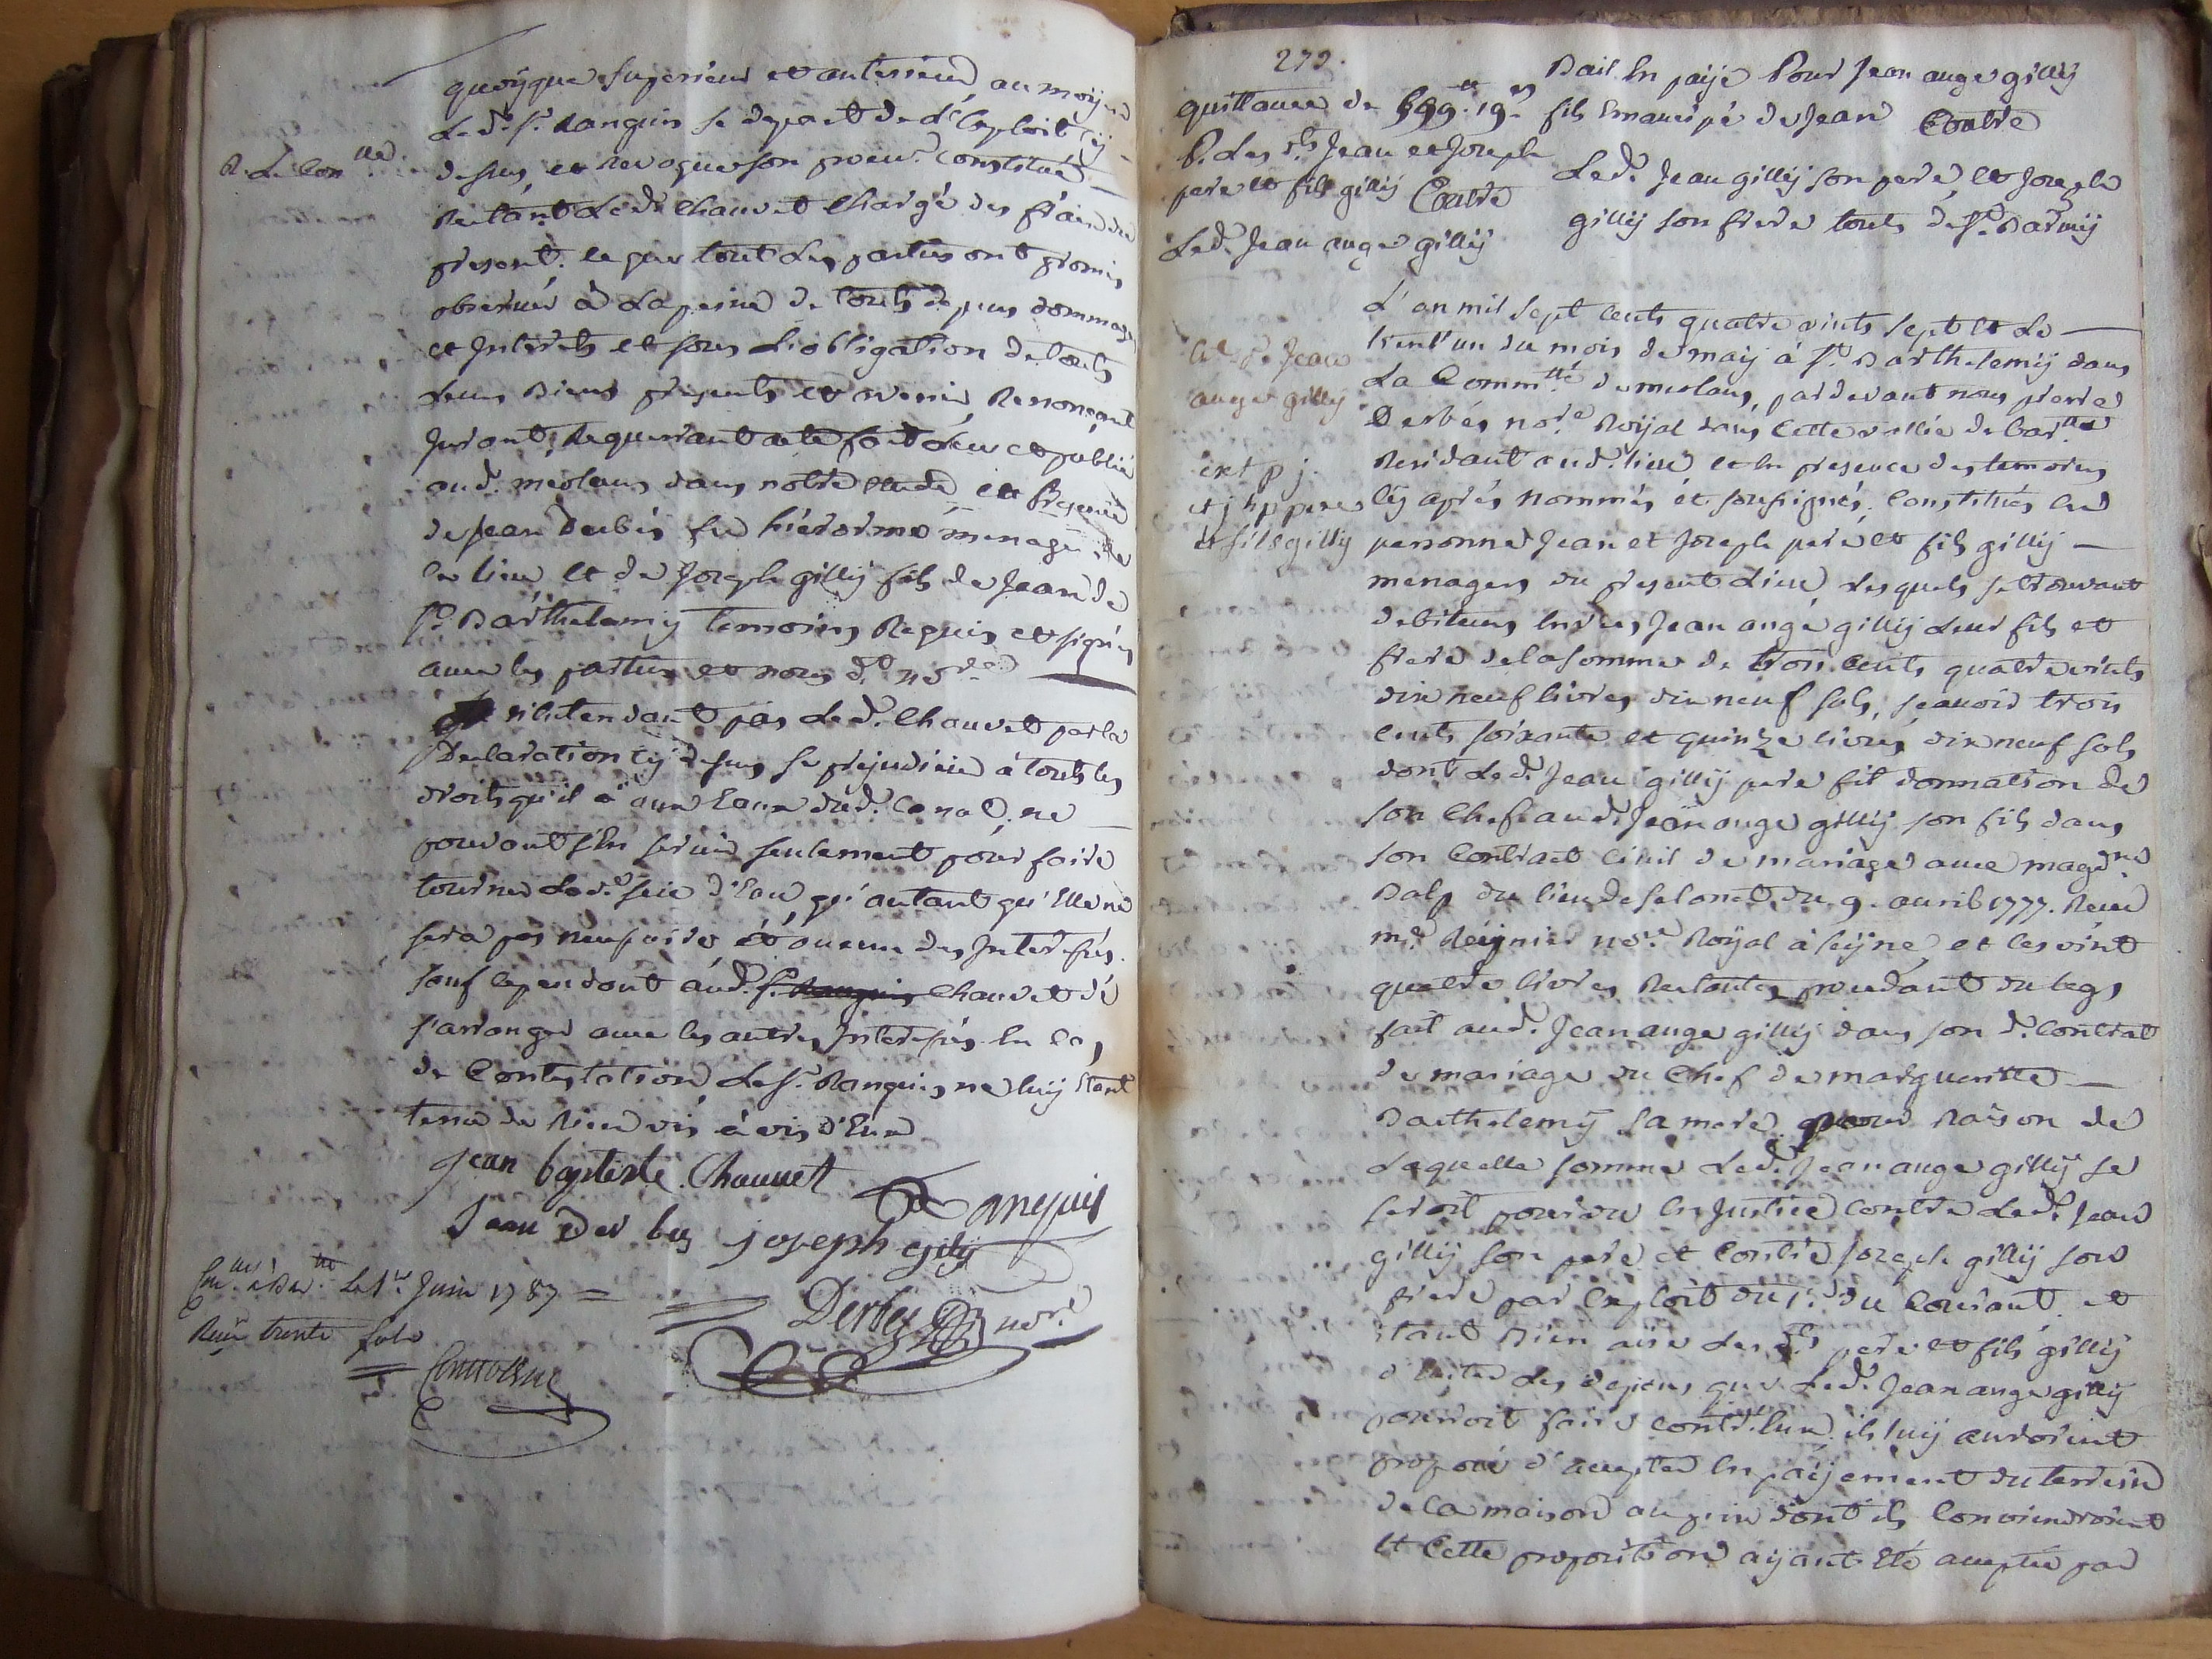 quoÿque superieur et anterieur au moÿen
Led. Sr. Ranguis se depart de l'exploit cÿ
dessus, et revoque son procur. constitué
Restant Ledt. Chauvet chargé des frais du
present. ce que tout les parties ont promis
observer à La peine de touts depens dommages
et Interets et sous L'obligation de touts
Leurs Biens presents et avenir, Renonçant
Jurant; Requerant acte fait Leu et publié
aud. meolans dans notre etude en presence
de Jean Derbés feu hierosme menager de
ce lieu et de Joseph gillÿ fils de Jean de
St. Barthelemy temoins Requis et signés
avec les parties et nous dt. nore
n'entendant pas Led. Chauvet par la
Declaration cÿ dessus se prejudicier à touts les
droits qu'il a aux Eaux dud. Canal. ne
pouvant s'en servir seulement pour faire
tourner Lad. scie d'Eau qu'autant qu'Elle ne
sera pas necessaire à aucun des Interessés.
sauf cependant aud. Sr. Ranguis Chauvet de
s'arranger avec les autres Interessés en cas
de Contestation, Le Sr. Ranguis ne luÿ étant
tenu de Rien vis à vis d'Eux
jean baptiste Chauvet Ranguis
Jean Derbes joseph gilÿ
Derbez nore.
Le 1er. Juin 1787 =
Reçu trente sols
279.
quittance de 399tt. 19s
P. Les dts. Jean et Joseph
pere et fils gillÿ Contre
Led. Jean ange gillÿ
Bail En paÿe Pour Jean ange gillÿ
fils Emancipé de Jean Contre
Led. Jean gillÿ son pere, et Joseph
gillÿ son frere touts de St. Barmÿ
Jean
ange gillÿ
ext p j.
et j h p pere
et fils gillÿ
L'an mil sept cents quatre vints sept et Le
trent'un du mois de maÿ à St. Barthelemÿ dans
La Commté. de meolans, pardevant nous pierre
Derbés nore. Roÿal dans cette vallée de Bartte
Residant aud. lieu et En presence des temoins
cÿ aprés nommés et sousignés. Constitués En
personne Jean et Joseph pere et fils gillÿ
menagers du present Lieu, Lesquels se trouvant
debiteurs Envers Jean ange gillÿ Leur fils et
frere de la somme de trois cents quatre vints
dix neuf livres dix neuf sols, sçavoir trois
cents soixante et quinze livres dix neuf sols
dont Led. Jean gillÿ pere fit donnation de
son Chef aud. Jean ange gillÿ son fils dans
son Contract civil de mariage avec magdne
Balp du lieu de Selonet du 9. avril 1777. Reçu
me. Reÿnier nore. Roÿal à seÿne, et les vint
quatre livres Restantes provenant du legs
fait aud. Jean ange gillÿ dans son d. Contrat
de mariage du Chef de margueritte
Barthelemÿ sa mere pour Raison de
Laquelle somme Led. Jean ange gillÿ se
seroit pourvu En Justice contre Led. Jean
gillÿ son pere et Contre Joseph gillÿ son
frere par Exploit du 15. du Courant. et
étant Bien aise Les dts. pere et fils gillÿ
d'Eviter Les depens que Led. Jean ange gillÿ
pourroit faire contre Eux ils luÿ auroient
proposé d'accepter En paÿement du terrein
de la maison au prix dont ils Conviendroient
Et Cette proposition aÿant Eté acceptée par